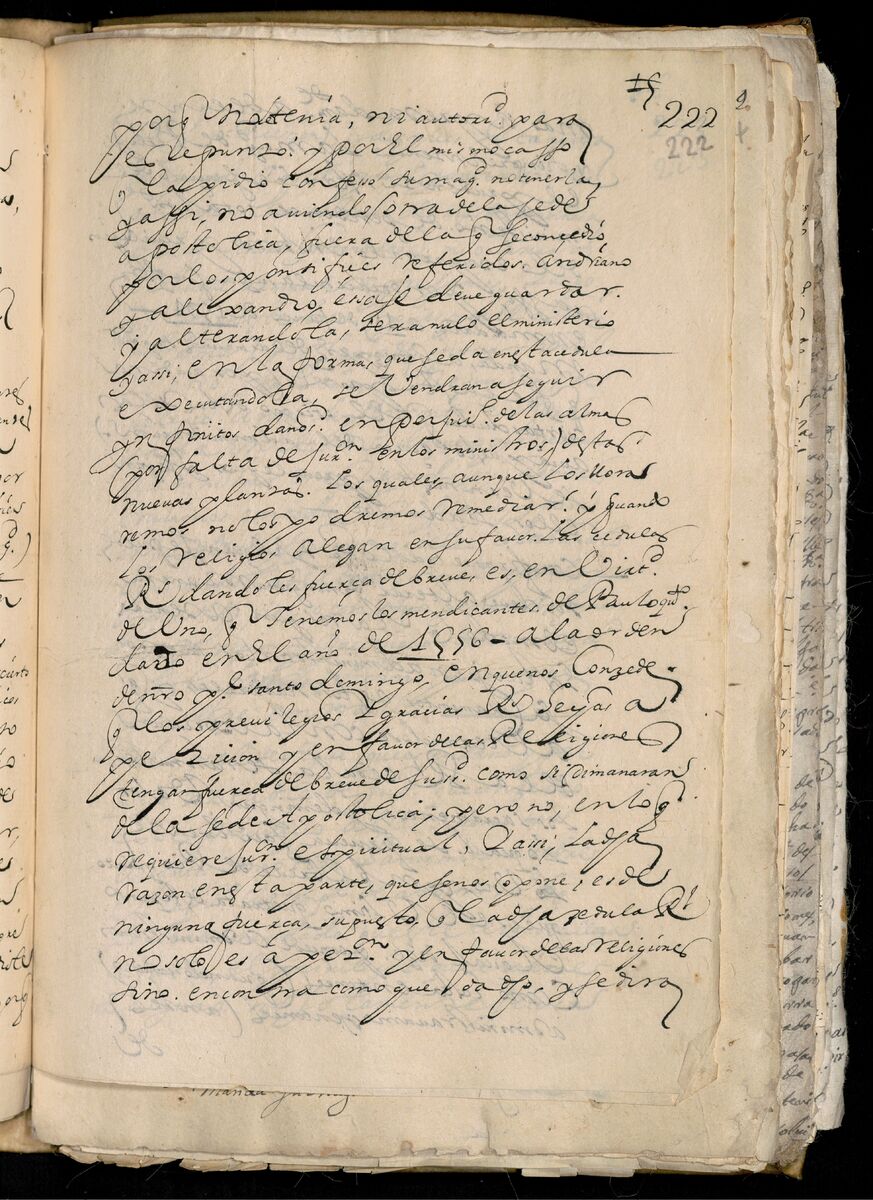 15
222
2
222
porq̃ no tenia, ni autorid. para
ese punto. y por El mismo casso
q̃ la pidio confesso su mag.d no tenerla,
y assi, no aviendo otra de la sede
apostolica, fuera de la q̃ se concedió
por los pontifices referidos. Andriano
y alexandro, essa se deve guardar.
y alterandola, sera nulo el ministerio
y assi, en la forma, que se da en esta cedula
executandola, se vendran a seguir
ynfinitos daños. en perjui.º de las almas
(por falta de jur.on en los ministros) destas
nuevas plantas. Los quales, aunque los llora
remos no los podremos remediar. y quando
los religios alegan en su favor. Las cedulas
R.s dandoles fuerça de breve, es, en Virt.d
de Uno, q̃ Tenemos los mendicantes. de Paulo qu.to
dado en El año de 1556 - a la orden
de nro p.e santo domingo, en que nos Conzede.
q̃ los previlegios y gracias R.s hechas a
petizion y en favor de las Religiones
tengan fuerça de breve de su s.d como si dimanaran
de la sede Apostolica; pero no, en lo q̃
requiere jur.on espiritual, y assi, La dha
razon en esta parte, que se nos opone, es de
ninguna fuerça, supuesto, q̃ la dha zedula R.l
no solo es a pez.on y en favor de las religiones
sino. en contra como queda dho, y se dira